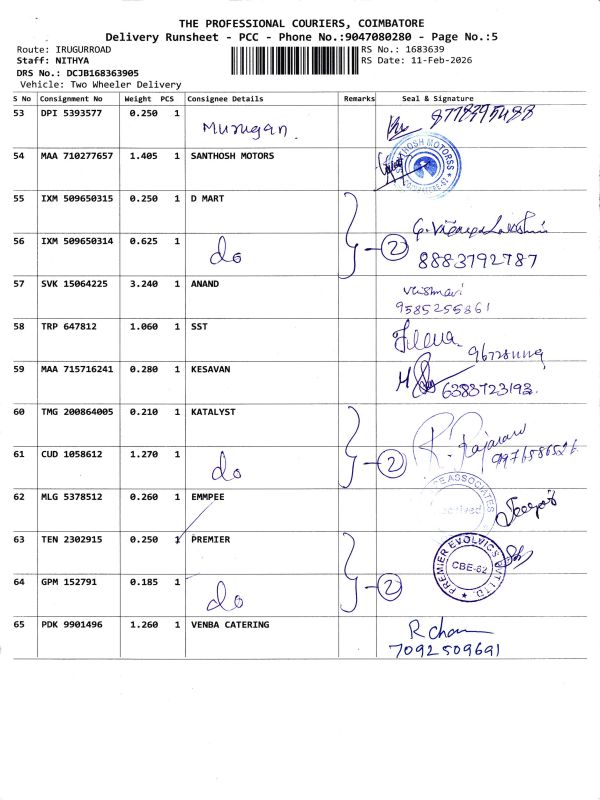 THE PROFESSIONAL COURIERS, COIMBATORE
Delivery Runsheet - PCC - Phone No.:9047080280 - Page No.:5
Route: IRUGURROAD RS No.: 1683639
Staff: NITHYA RS Date: 11-Feb-2026
DRS No.: DCJB168363905
Vehicle: Two Wheeler Delivery
S No Consignment No Weight PCS Consignee Details Remarks Seal & Signature
53 DPI 5393577 0.250 1 Murugan
54 MAA 710277657 1.405 1 SANTHOSH MOTORS
55 IXM 509650315 0.250 1 D MART
56 IXM 509650314 0.625 1 do 2 8883792787
57 SVK 15064225 3.240 1 ANAND
9585255861
58 TRP 647812 1.060 1 SST
59 MAA 715716241 0.280 1 KESAVAN 6383723193
60 TMG 200864005 0.210 1 KATALYST
61 CUD 1058612 1.270 1 do 2 K. Rajaram
62 MLG 5378512 0.260 1 EMMPEE
63 TEN 2302915 0.250 1 PREMIER
PREMIER EVOLVICS PVT LTD. CBE-62
64 GPM 152791 0.185 1 do 2
65 PDK 9901496 1.260 1 VENBA CATERING
7092509691